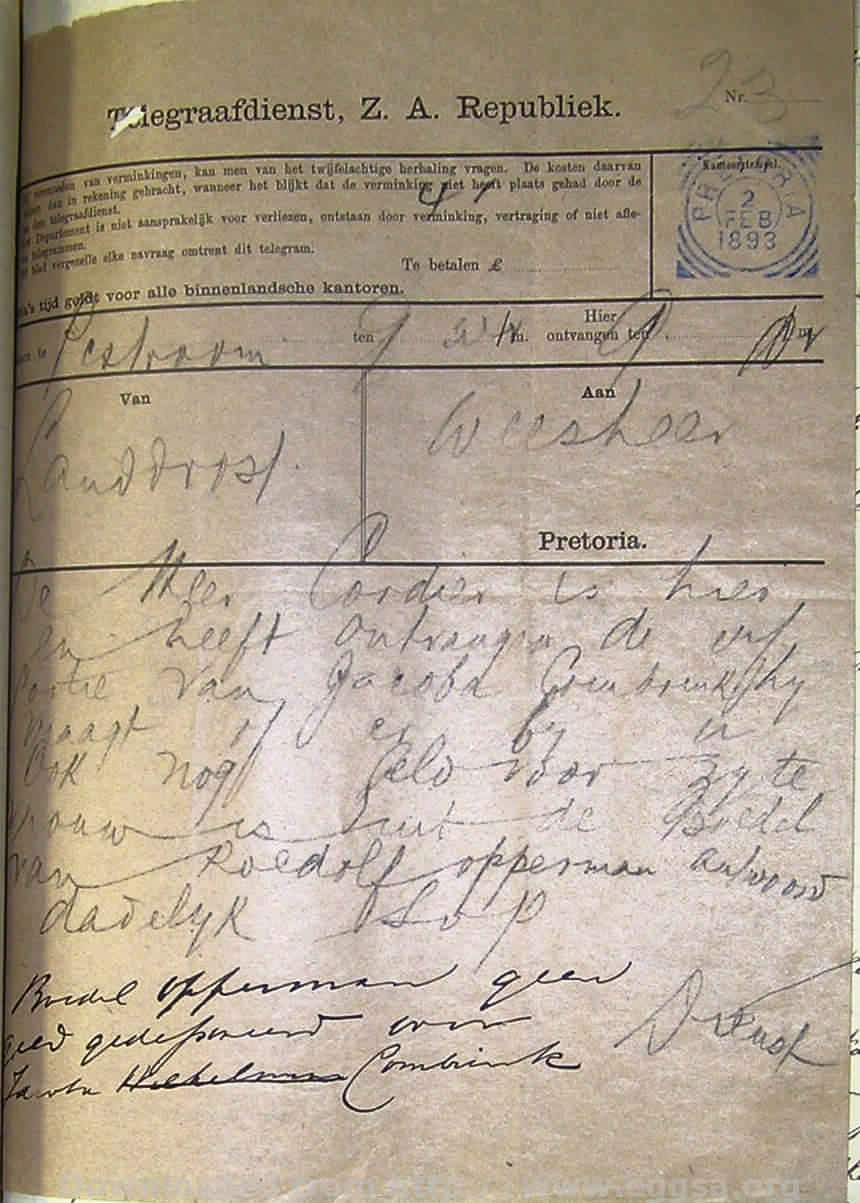 Nr. 23
Telegraafdienst, Z. A. Republiek.
van verminkingen, kan men van het twijfelachtige herhaling vragen. De kosten daarvan
dan in rekening gebracht, wanneer het blijkt dat de verminking niet heeft plaats gehad door de
den telegraafdienst.
Departement is niet aansprakelijk voor verliezen, ontstaan door verminking, vertraging of niet afle-
telegrammen.
blad vergezelle elke navraag omtrent dit telegram.
Te betalen £
tijd geldt voor alle binnenlandsche kantoren.
Kantoorstempel.
PRETORIA
2
FEB
1893
te Pcstroom ten 9 m. Hier ontvangen ten 9 m
Van
Landdrost.
Aan
Weesheer
Pretoria.
De Heer Cordier is hier
en heeft ontvangen de erf
Portie van Jacoba Combrink hy
vraagt of er by u
Ook nog Geld voor zyne
vrouw is uit de Boedel
van Roedolf opperman antwoord
dadelyk
Dienst
Boedel opperman geen
geld gedeponeerd voor
Jacoba Combrink